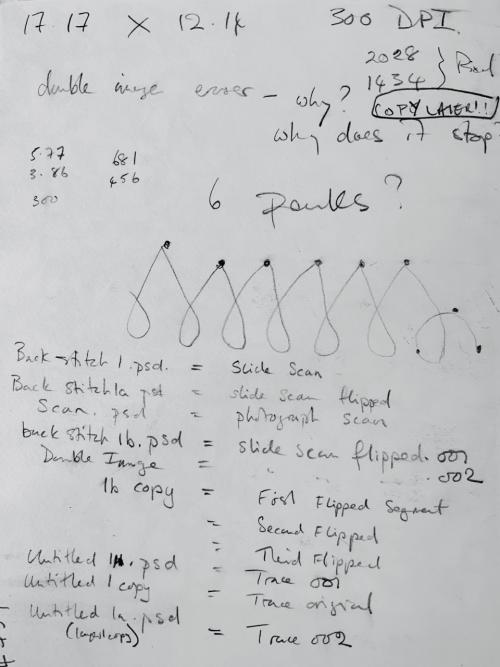 17.17 X 12.14 300 DPI.
2028
1434
double image error - why? COPY LATER!!
why does it stop?
5.77 681
3.86 456
300
6 Points?
Back-stitch 1.psd. = Slide Scan
Back stitch 1a psd = slide scan flipped
Scan. psd = photograph scan
back stitch 1b. psd = slide scan flipped. 001
Double Image = " " " .002
1b copy = First Flipped Segment
= Second Flipped
= Third Flipped
Untitled 1.psd = Trace 001
Untitled 1 copy = Trace original
Untitled 1a. psd
= Trace 002